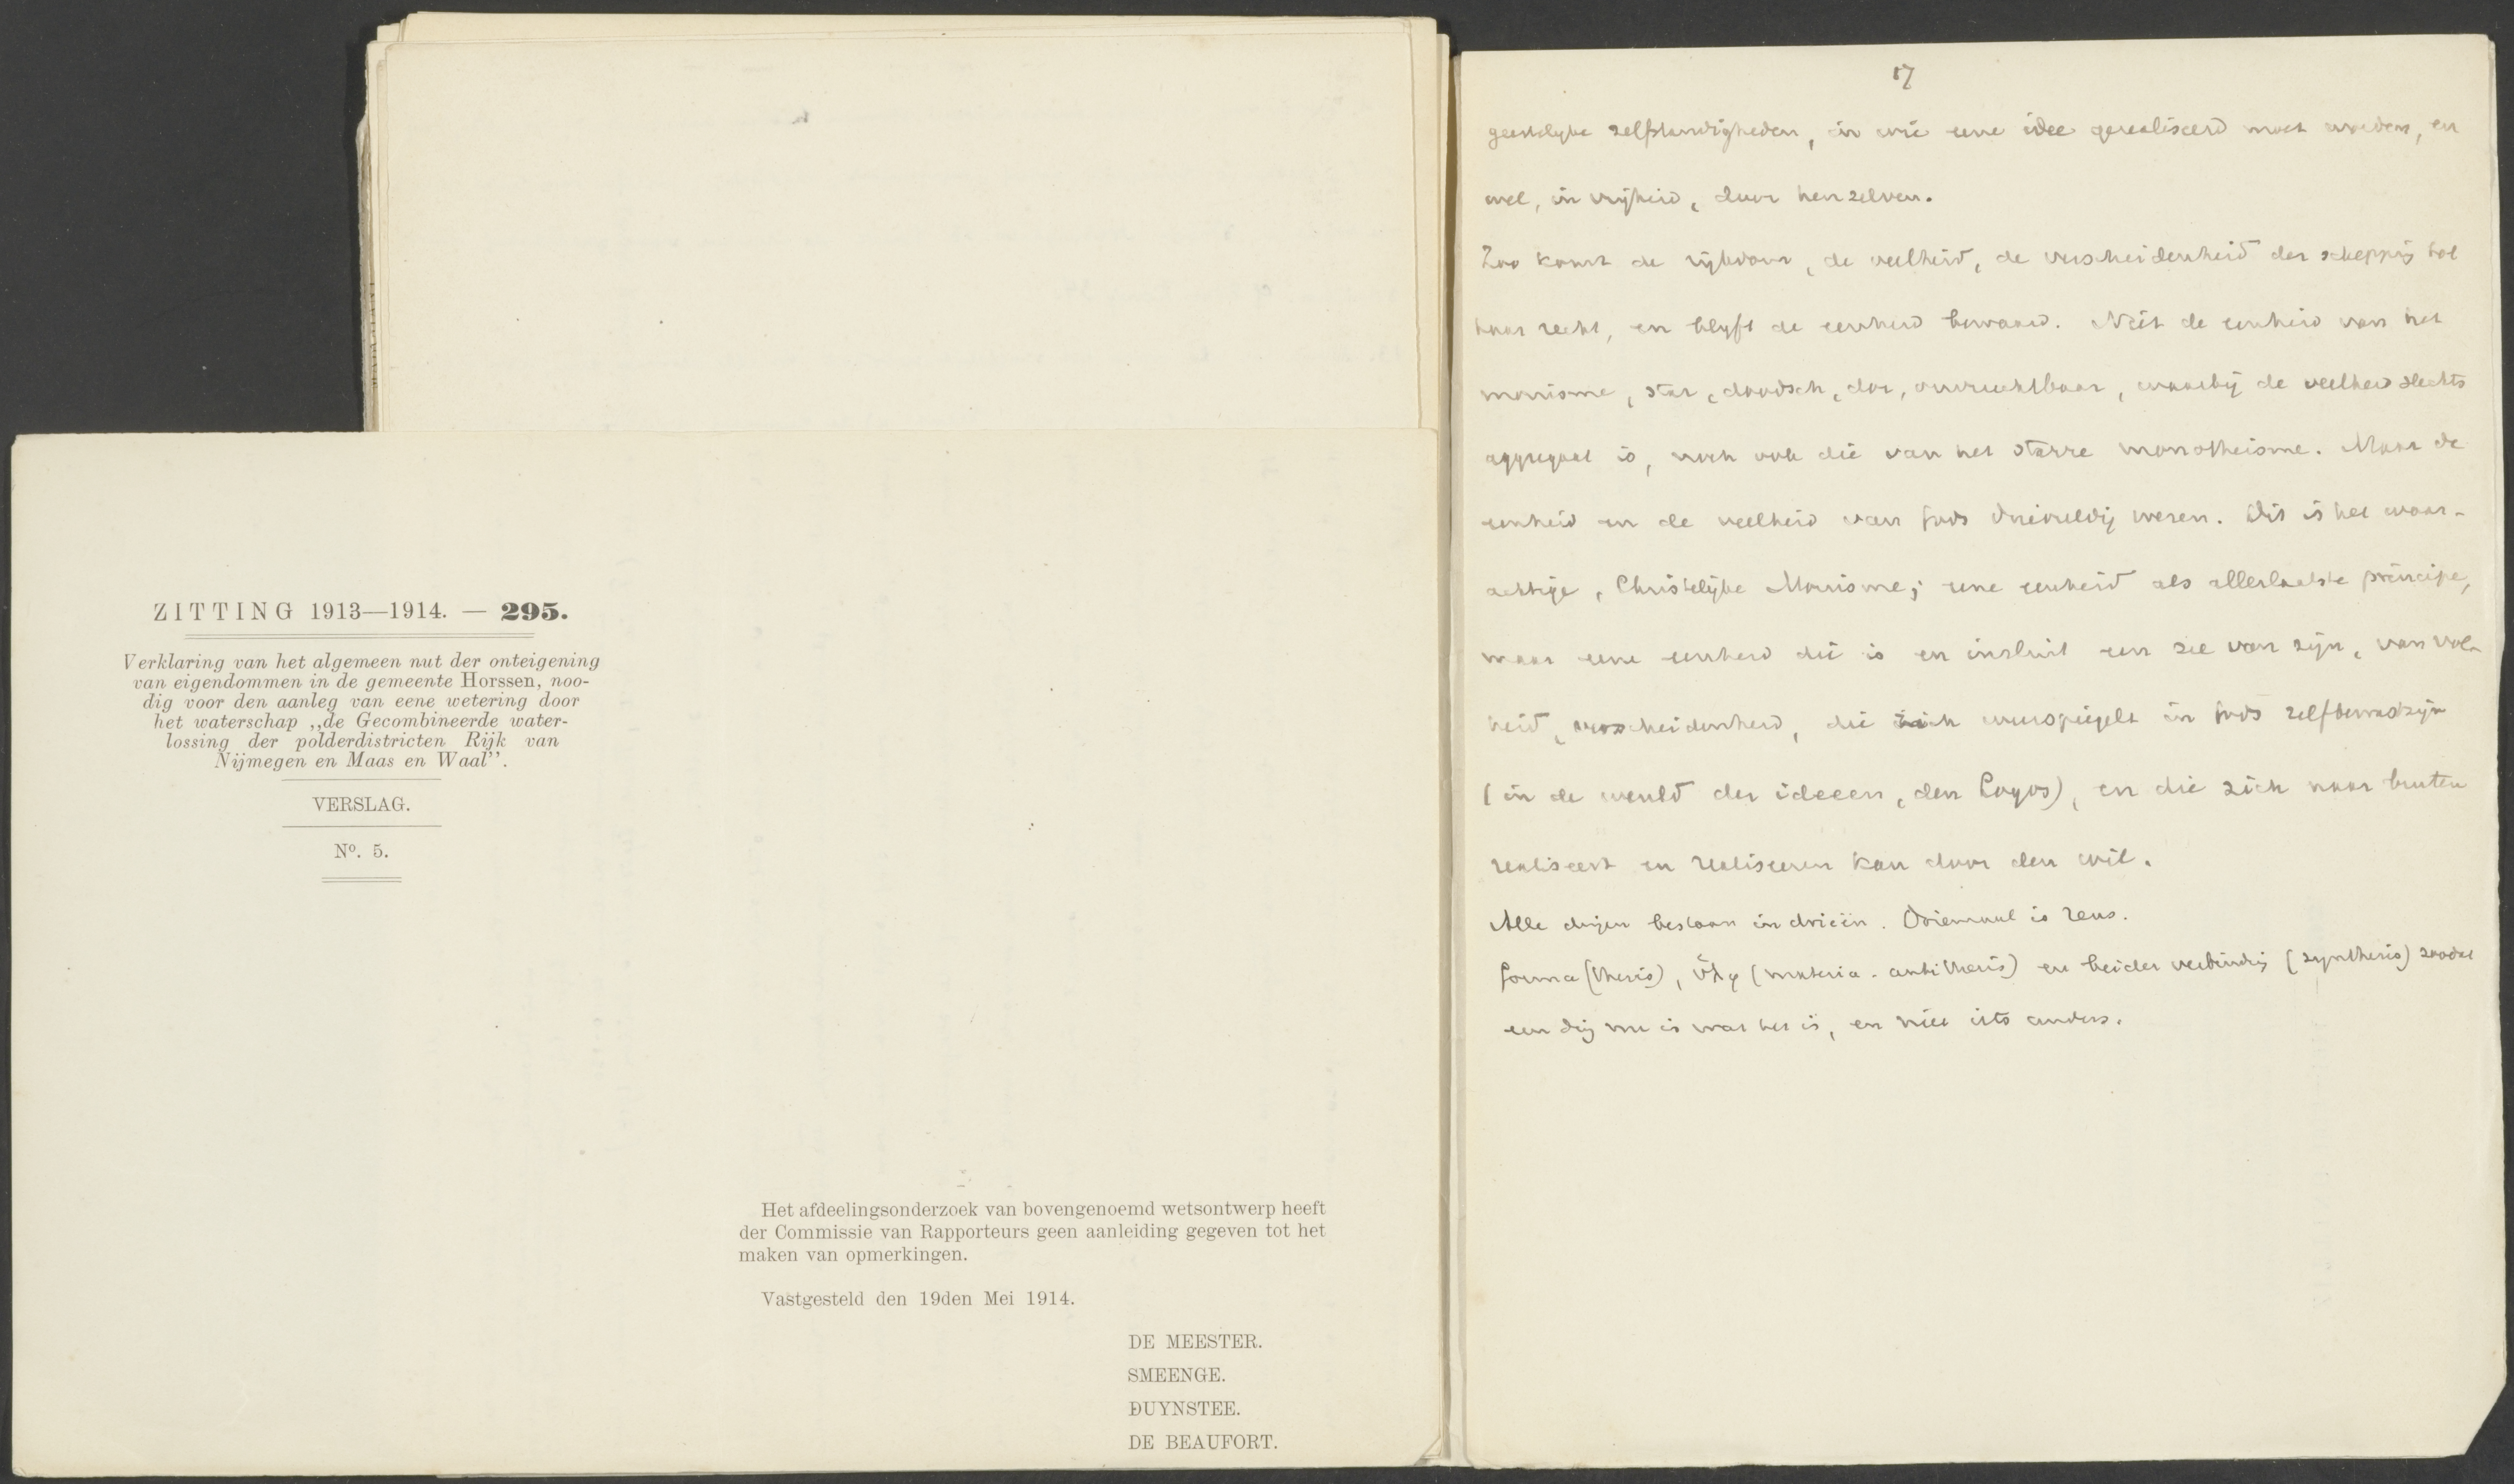 ZITTING 1913—1914. — 295.
Verklaring van het algemeen nut der onteigening
van eigendommen in de gemeente Horssen, noo-
dig voor den aanleg van eene wetering door
het waterschap „de Gecombineerde water-
lossing der polderdistricten Rijk van
Nijmegen en Maas en Waal”.
VERSLAG.
Nº. 5.
Het afdeelingsonderzoek van bovengenoemd wetsontwerp heeft
der Commissie van Rapporteurs geen aanleiding gegeven tot het
maken van opmerkingen.
Vastgesteld den 19den Mei 1914.
DE MEESTER.
SMEENGE.
DUYNSTEE.
DE BEAUFORT.
17
geestelijke zelfstandigheden, in wie eene idee gerealiseerd moet worden, en
wel, in vrijheid, door hen zelven.
Zoo komt de rijkdom, de veelheid, de verscheidenheid der schepping tot
haar recht, en blijft de eenheid bewaard. Niet de eenheid van het
monisme, star, doodsch, dor, onvruchtbaar, waarbij de veelheid slechts
aggregaat is, noch ook die van het starre monotheisme. Maar de
eenheid en de veelheid van Gods drievuldig wezen. Dit is het waar-
achtige, Christelijke Monisme; eene eenheid als allerlaatste principe,
maar eene eenheid die is en insluit een zee van zijn, van vol-
heid, verscheidenheid, die zich weerspiegelt in Gods zelfbewustzijn
(in de wereld der ideeen, den Logos), en die zich naar buiten
realiseert en realiseren kan door den wil.
Alle dingen bestaan in drieën. Driemaal is Zeus.
forma (thesis), ὕλη (materia - antithesis) en beider verbinding (synthesis) zoodat
een ding nu is wat het is, en niet iets anders.